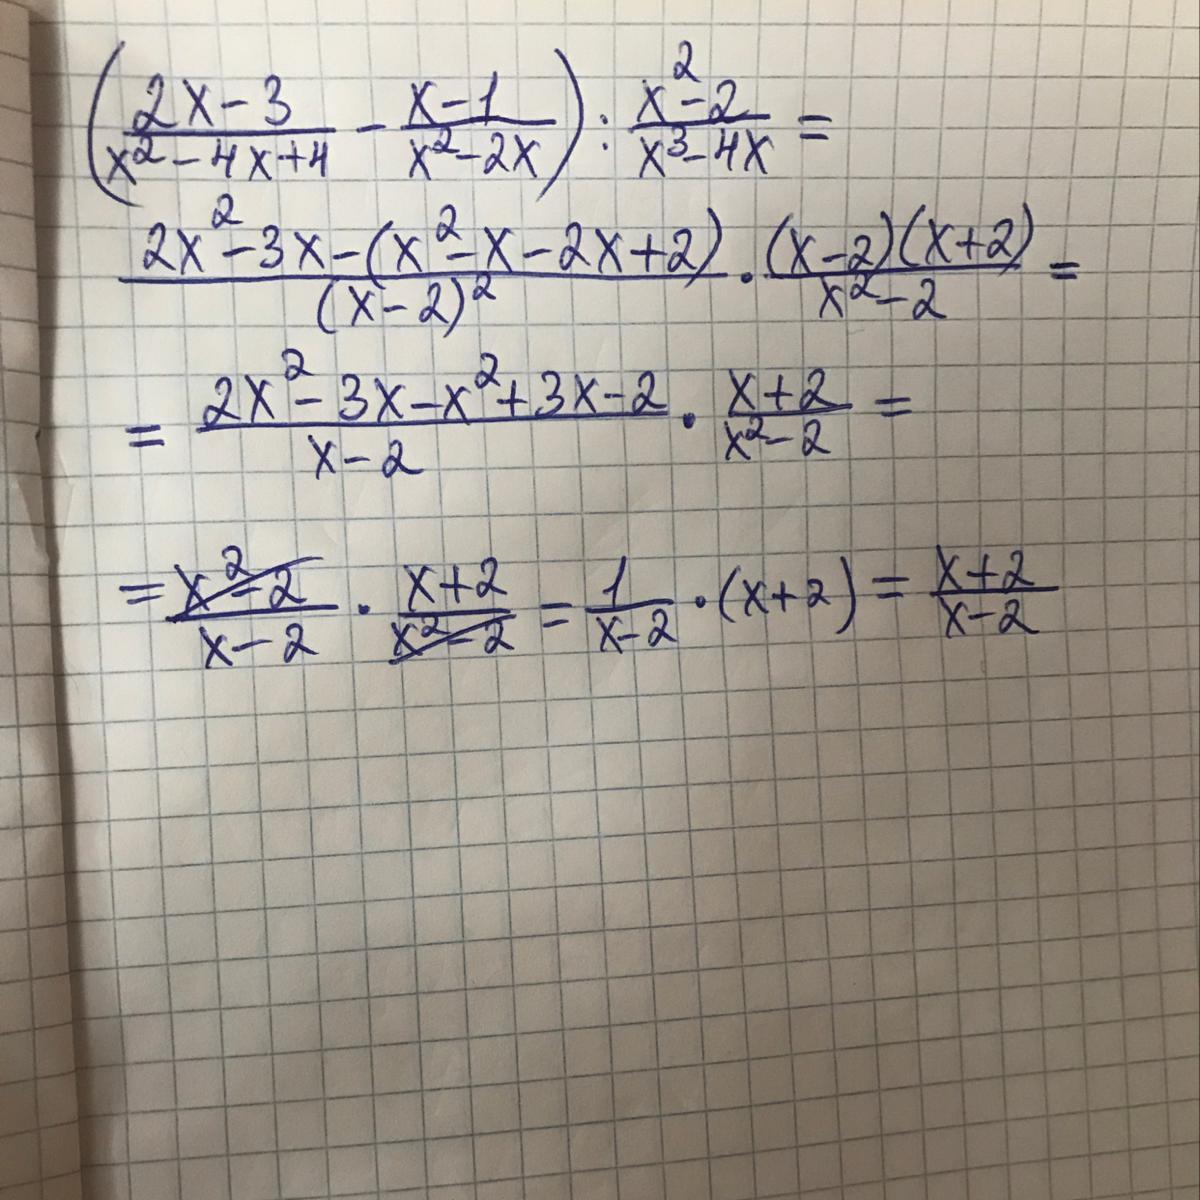 (\frac{2x-3}{x^2-4x+4} - \frac{x-1}{x^2-2x}) : \frac{x^2-2}{x^3-4x} =
\frac{2x^2-3x-(x^2-x-2x+2)}{(x-2)^2} \cdot \frac{(x-2)(x+2)}{x^2-2} =
= \frac{2x^2-3x-x^2+3x-2}{x-2} \cdot \frac{x+2}{x^2-2} =
= \frac{x^2-2}{x-2} \cdot \frac{x+2}{x^2-2} = \frac{1}{x-2} \cdot (x+2) = \frac{x+2}{x-2}